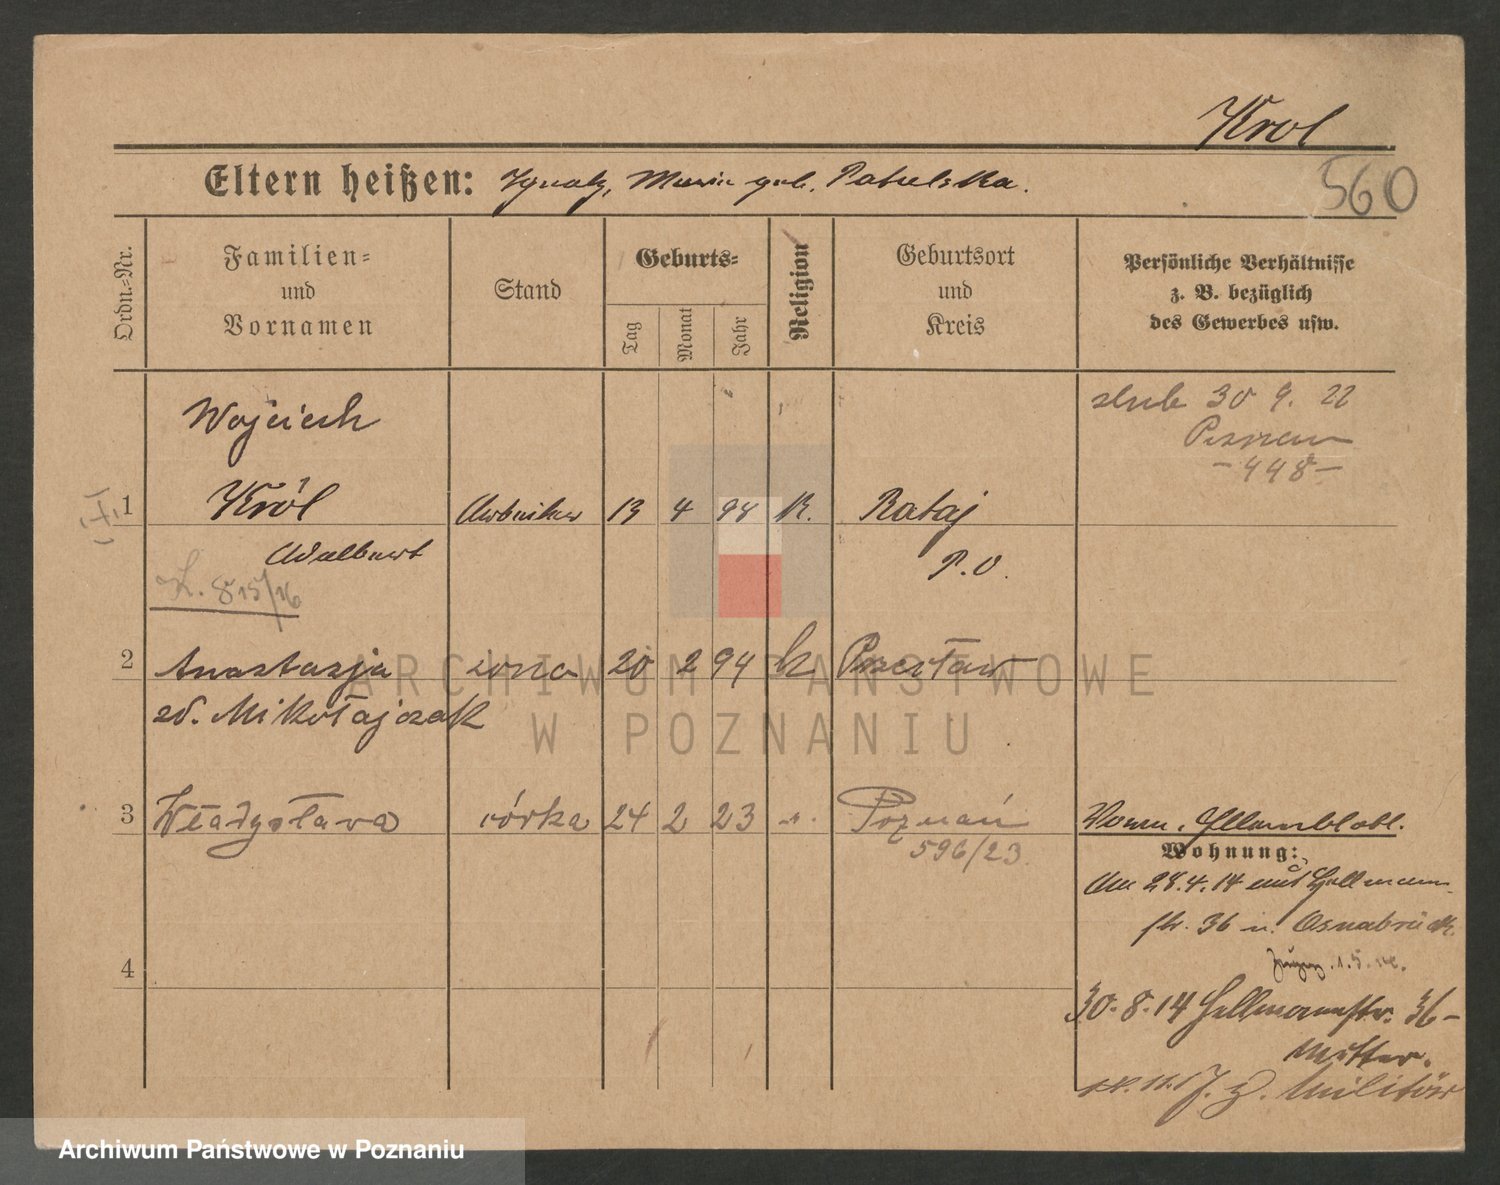 Krol
Eltern heißen: Ignatz, Maria geb. Patulska.
560
Ordn.-Nr.
Familien- und Vornamen
Stand
Geburts-
Tag
Monat
Jahr
Religion
Geburtsort und Kreis
Persönliche Verhältnisse z. B. bezüglich des Gewerbes usw.
Wojciech
ślub 30 9. 22
Poznań
-448-
1 Król Arbeiter 13 4 98 K. Rataj
Adalbert P.O.
K. 815/16
2 Anastazja żona 20 2 94 k
zd. Mikołajczak
3 Władysława córka 24 2 23 Poznań
596/23
Wohnung:
Am 28.4.14 aus Hellmann-
str. 36 n. Osnabrück.
4
1.5.14.
30.8.14 Hellmannstr. 36-
Mutter.
z. Militär
ARCHIWUM PAŃSTWOWE
W POZNANIU
Archiwum Państwowe w Poznaniu